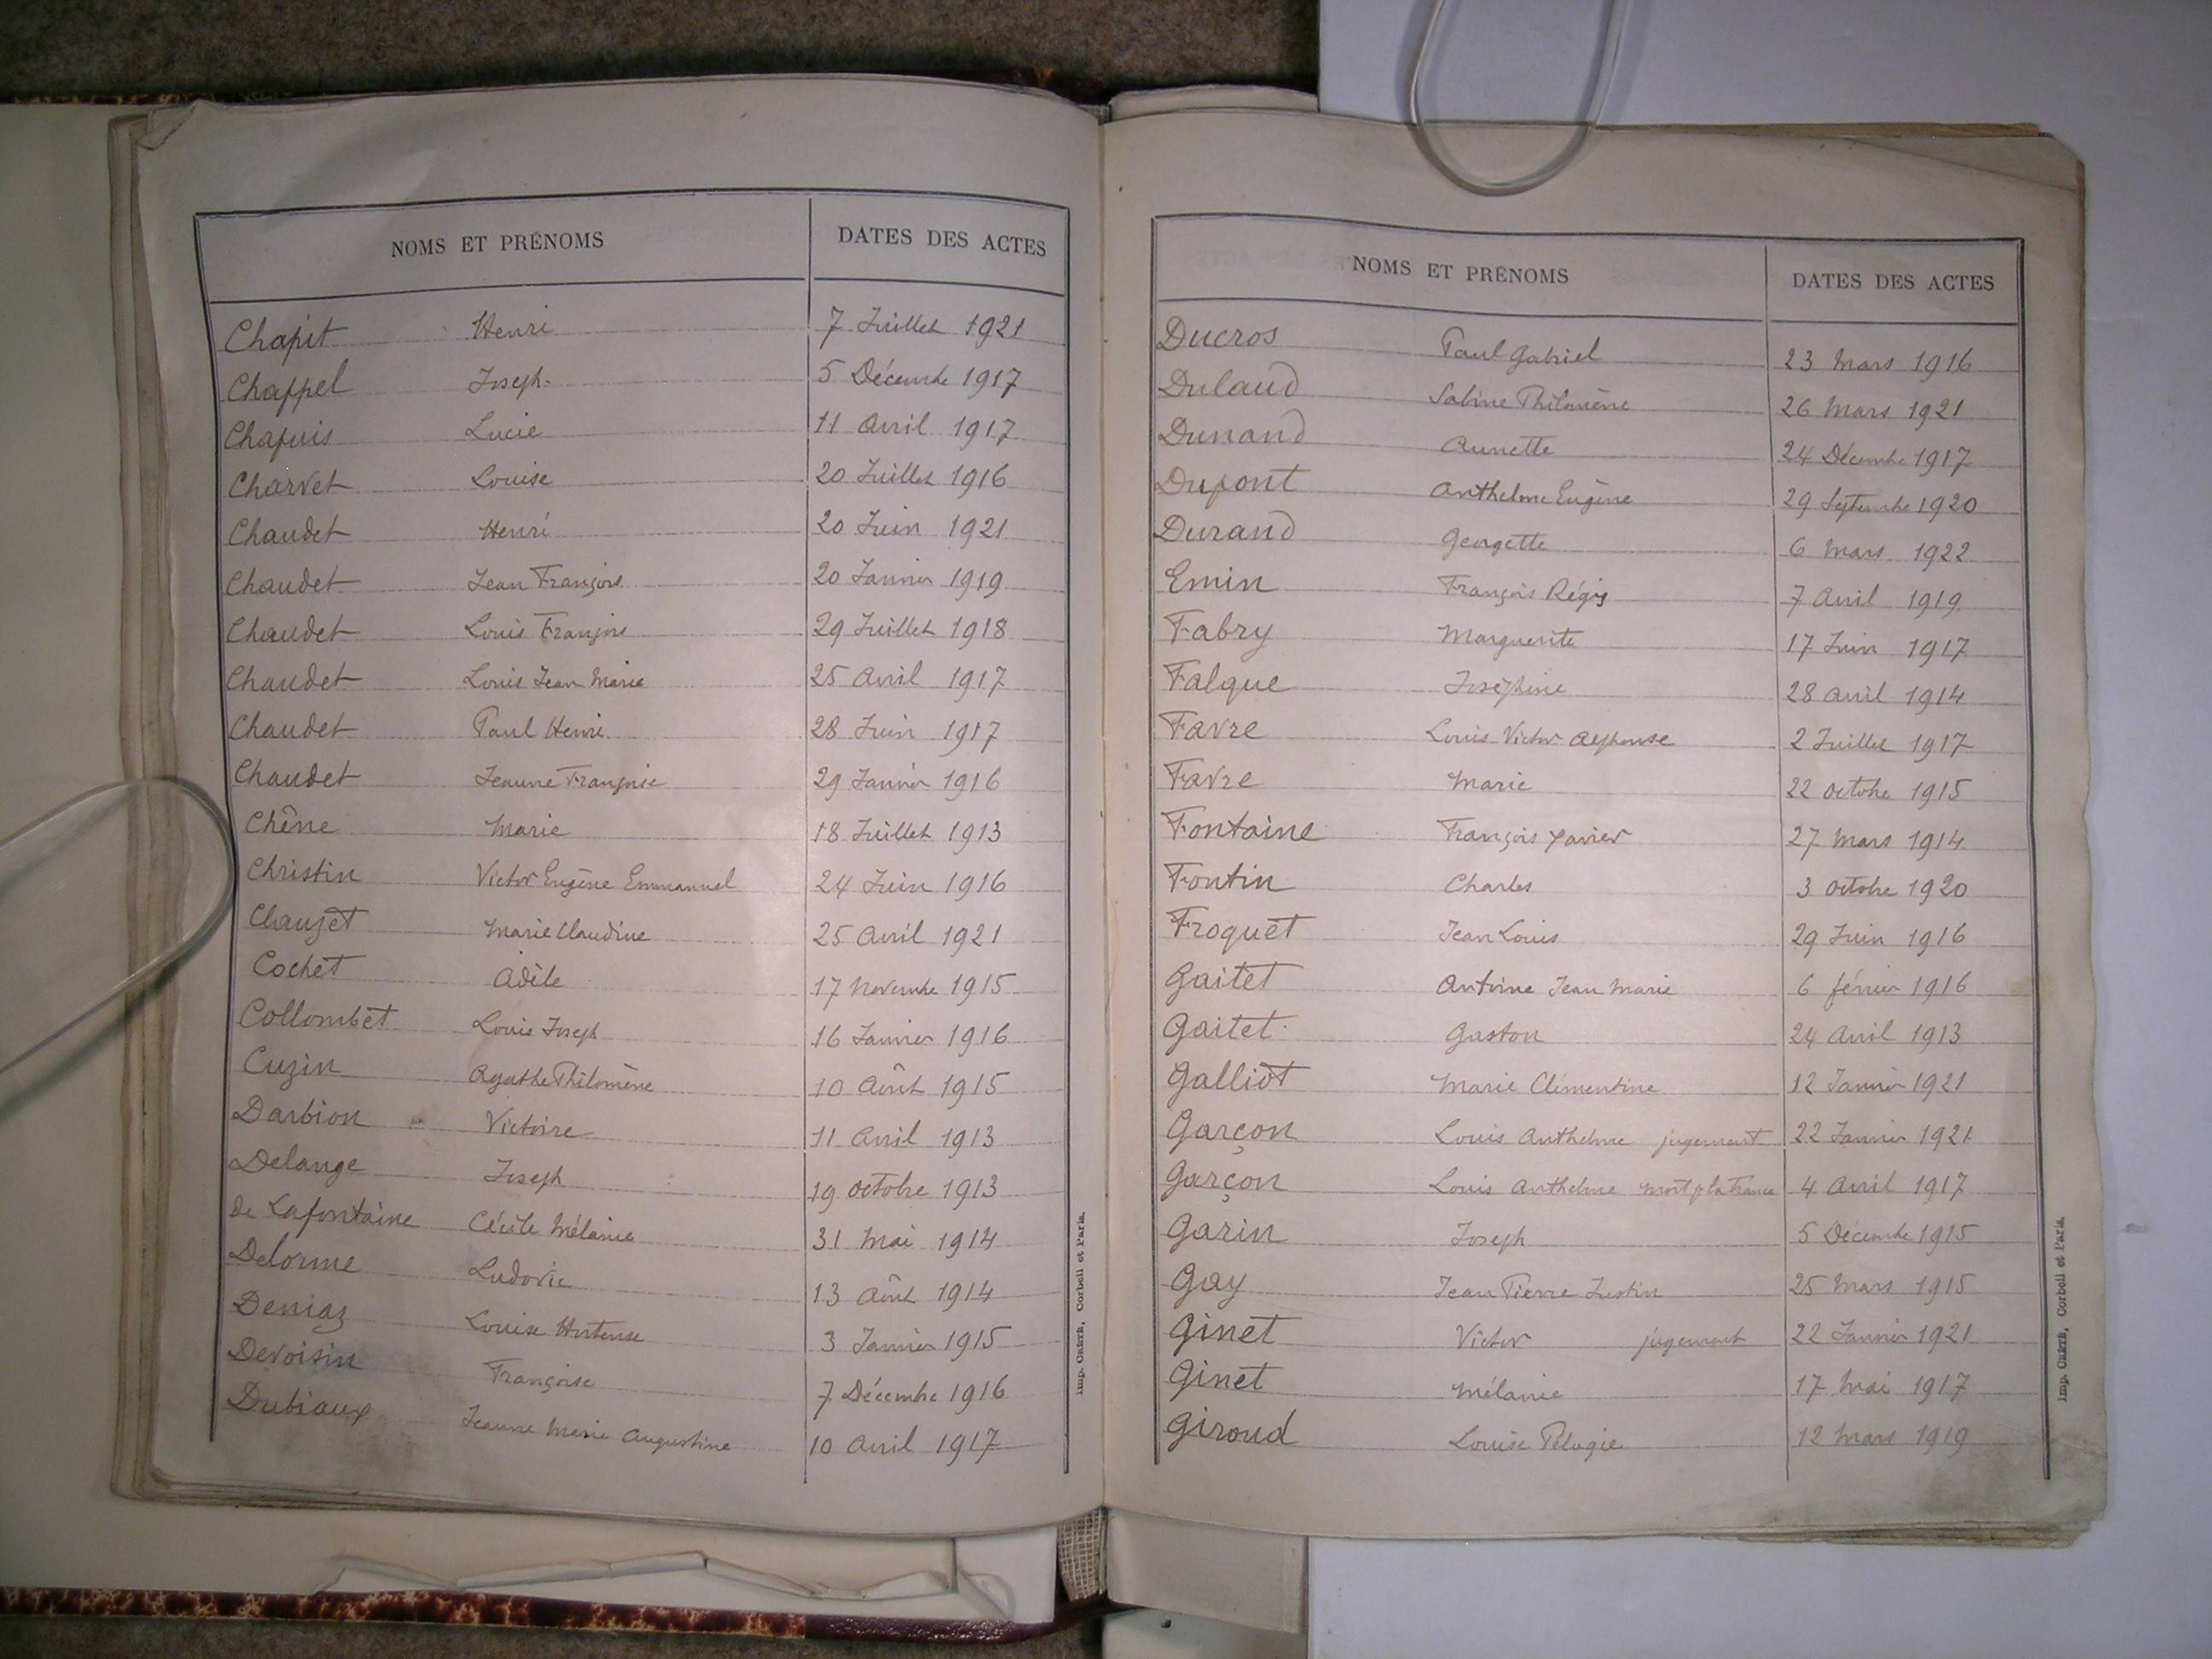 NOMS ET PRÉNOMS DATES DES ACTES
Chapit Henri 7 Juillet 1921
Chappel Joseph 5 Décembre 1917
Chapuis Lucie 11 Avril 1917
Charvet Louise 20 Juillet 1916
Chaudet Henri 20 Juin 1921
Chaudet Jean François 20 Janvier 1919
Chaudet Louis François 29 Juillet 1918
Chaudet Louis Jean Marie 25 Avril 1917
Chaudet Paul Henri 28 Juin 1917
Chaudet Jeanne Françoise 29 Janvier 1916
Chêne Marie 18 Juillet 1913
Christin Victor Eugène Emmanuel 24 Juin 1916
Clauzet Marie Claudine 25 Avril 1921
Cochet Adèle 17 Novembre 1915
Collombet Louis Joseph 16 Janvier 1916
Cuzin Agathe Philomène 10 Août 1915
Darbion Victoire 11 Avril 1913
Delange Joseph 19 Octobre 1913
de Lafontaine Cécile Mélanie 31 Mai 1914
Delorme Ludovic 13 Août 1914
Deniaz Louise Hortense 3 Janvier 1915
Devoisin Françoise 7 Décembre 1916
Dubiaux Jeanne Marie Augustine 10 Avril 1917
Imp. CRÉTÉ, Corbeil et Paris.
NOMS ET PRÉNOMS DATES DES ACTES
Ducros Paul Gabriel 23 Mars 1916
Dulaud Sabine Philomène 26 Mars 1921
Dunand Annette 24 Décembre 1917
Dupont Anthelme Eugène 29 Septembre 1920
Durand Georgette 6 Mars 1922
Emin François Régis 7 Avril 1919
Fabry Marguerite 17 Juin 1917
Falque Joséphine 28 Avril 1914
Favre Louis Victor Alphonse 2 Juillet 1917
Favre Marie 22 Octobre 1915
Fontaine François Xavier 27 Mars 1914
Fontin Charles 3 Octobre 1920
Froquet Jean Louis 29 Juin 1916
Gaitet Antoine Jean Marie 6 février 1916
Gaitet Gaston 24 Avril 1913
Galliot Marie Clémentine 12 Janvier 1921
Garçon Louis Anthelme jugement 22 Janvier 1921
Garçon Louis Anthelme mort p la France 4 Avril 1917
Garin Joseph 5 Décembre 1915
Gay Jean Pierre Justin 25 Mars 1915
Ginet Victor jugement 22 Janvier 1921
Ginet Mélanie 17 Mai 1917
Giroud Louise Pélagie 12 Mars 1919
Imp. CRÉTÉ, Corbeil et Paris.